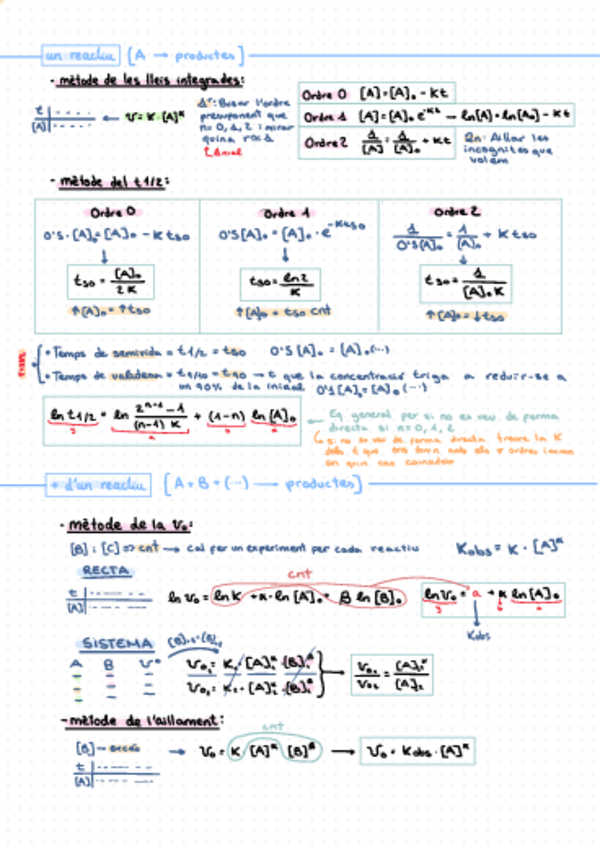 un reactiu [A → productes]
- mètode de les lleis integrades:
t
[A]
← v = K·[A]ⁿ
1r: Buscar l'ordre
presuposant que
n= 0, 1, 2 i mirar
quina recta
Ordre 0 [A]=[A]₀ - Kt
Ordre 1 [A]=[A]₀ e^-Kt → ln[A]=ln[A₀] - Kt
Ordre 2 1/[A] = 1/[A]₀ + Kt
2n: Aïllar les
incògnites que
volem
- mètode del t1/2:
Ordre 0
0'5·[A]₀=[A]₀ - Kt50
↓
t50 = [A]₀/2K
↑[A]₀ = ↑t50
Ordre 1
0'5[A]₀ = [A]₀ · e^-Kt50
↓
t50 = ln2/K
↑[A]₀ = t50 cnt
Ordre 2
1/0'5[A]₀ = 1/[A]₀ + Kt50
↓
t50 = 1/[A]₀K
↑[A]₀ = ↓t50
• Temps de semivida = t1/2 = t50 0'5[A]₀ = [A]₀(...)
• Temps de validesa = t9/10 = t90 → t que la concentració triga a reduir-se a
un 90% de la inicial 0'9[A]₀ = [A]₀ (...)
ln t1/2 = ln (2ⁿ⁻¹ - 1)/((n-1) K) + (1-n) ln[A]₀
← Eq. general per si no es veu de forma
directa si n= 0, 1, 2
si no es veu de forma directa treure la K
dels t que ens donin amb els ordres i mirar
en quin cas coincideix
+ d'un reactiu [A + B + (...) → productes]
- mètode de la v₀:
[B] i [C] => cnt → cal fer un experiment per cada reactiu Kobs = K · [A]ⁿ
RECTA
cnt
t
[A]
ln v₀ = ln K + α·ln [A]₀ + β ln [B]₀
ln v₀ = a + α ln [A]₀
Kobs
SISTEMA
A B v₀
v₀₁ = K · [A]₁ᵅ · [B]₁ᵝ
v₀₂ = K · [A]₂ᵅ · [B]₂ᵝ
v₀₁/v₀₂ = [A]₁ᵅ/[A]₂
- mètode de l'aïllament:
cnt
[B] → excés
t
[A]
→ v₀ = K [A]ᵅ [B]ᵝ → v₀ = Kobs · [A]ᵅ